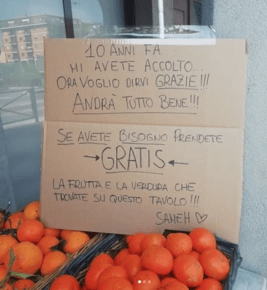 10 ANNI FA...
MI AVETE ACCOLTO...
ORA VOGLIO DIRVI GRAZIE!!!
ANDRÀ TUTTO BENE!!!
SE AVETE BISOGNO PRENDETE
→GRATIS←
LA FRUTTA E LA VERDURA CHE
TROVATE SU QUESTO TAVOLO!!!
SAHEH ♡